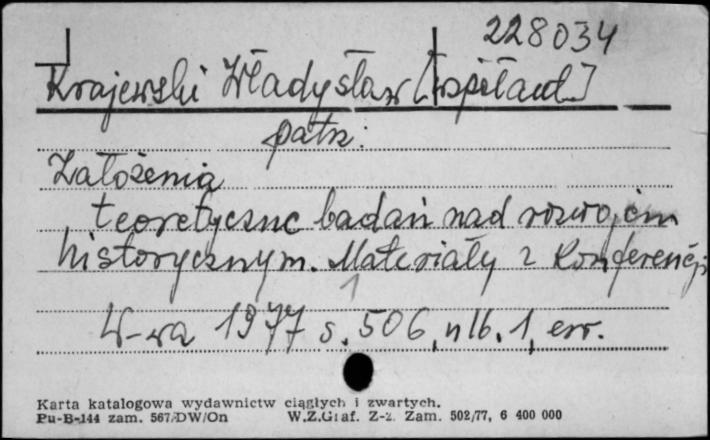 228034
Krajewski Władysław [współaut.]
patrz:
Założenia
teoretyczne badań nad rozwojem
historycznym. Materiały z Konferencji
W-wa 1977 s. 506, nlb. 1, err.
Karta katalogowa wydawnictw ciągłych i zwartych.
Pu-B-144 zam. 567/DW/On W.Z.Graf. Z-z. Zam. 502/77, 6 400 000